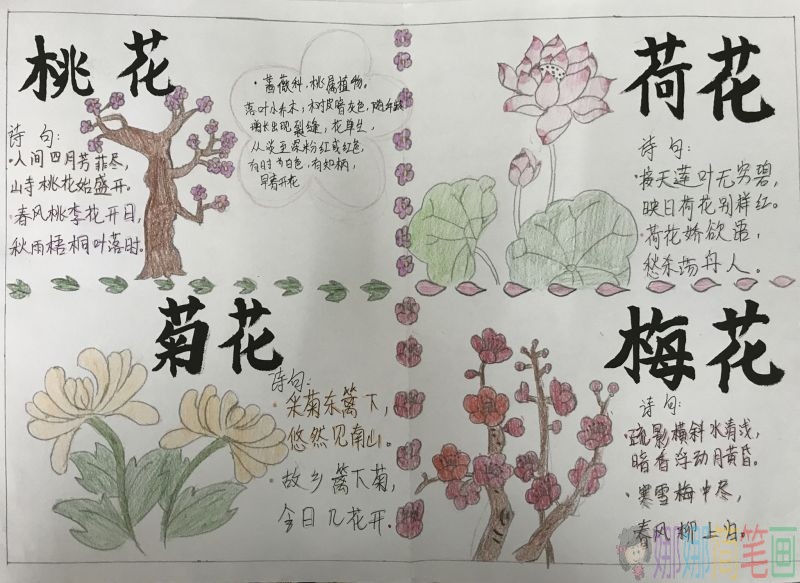 桃花
诗句:
·人间四月芳菲尽,
山寺桃花始盛开。
·春风桃李花开日,
秋雨梧桐叶落时。
·蔷薇科,桃属植物。
落叶小乔木,树皮暗灰色,随年龄
增长出现裂缝,花单生,
从淡至深粉红或红色,
有时为白色,有短柄,
早春开花
荷花
诗句:
·接天莲叶无穷碧,
映日荷花别样红。
·荷花娇欲语,
愁杀荡舟人。
菊花
诗句:
·采菊东篱下,
悠然见南山。
·故乡篱下菊,
今日几花开.
梅花
诗句:
·疏影横斜水清浅,
暗香浮动月黄昏。
·寒雪梅中尽,
春风柳上归。
娜娜简笔画